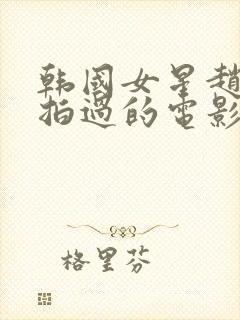 韩国女星趙
拍過的電影
格里芬